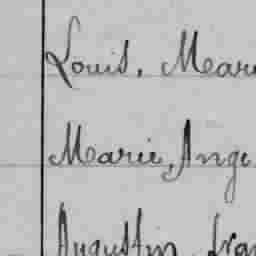 Louis, Mari
Marie, Ange
Augustin, fran